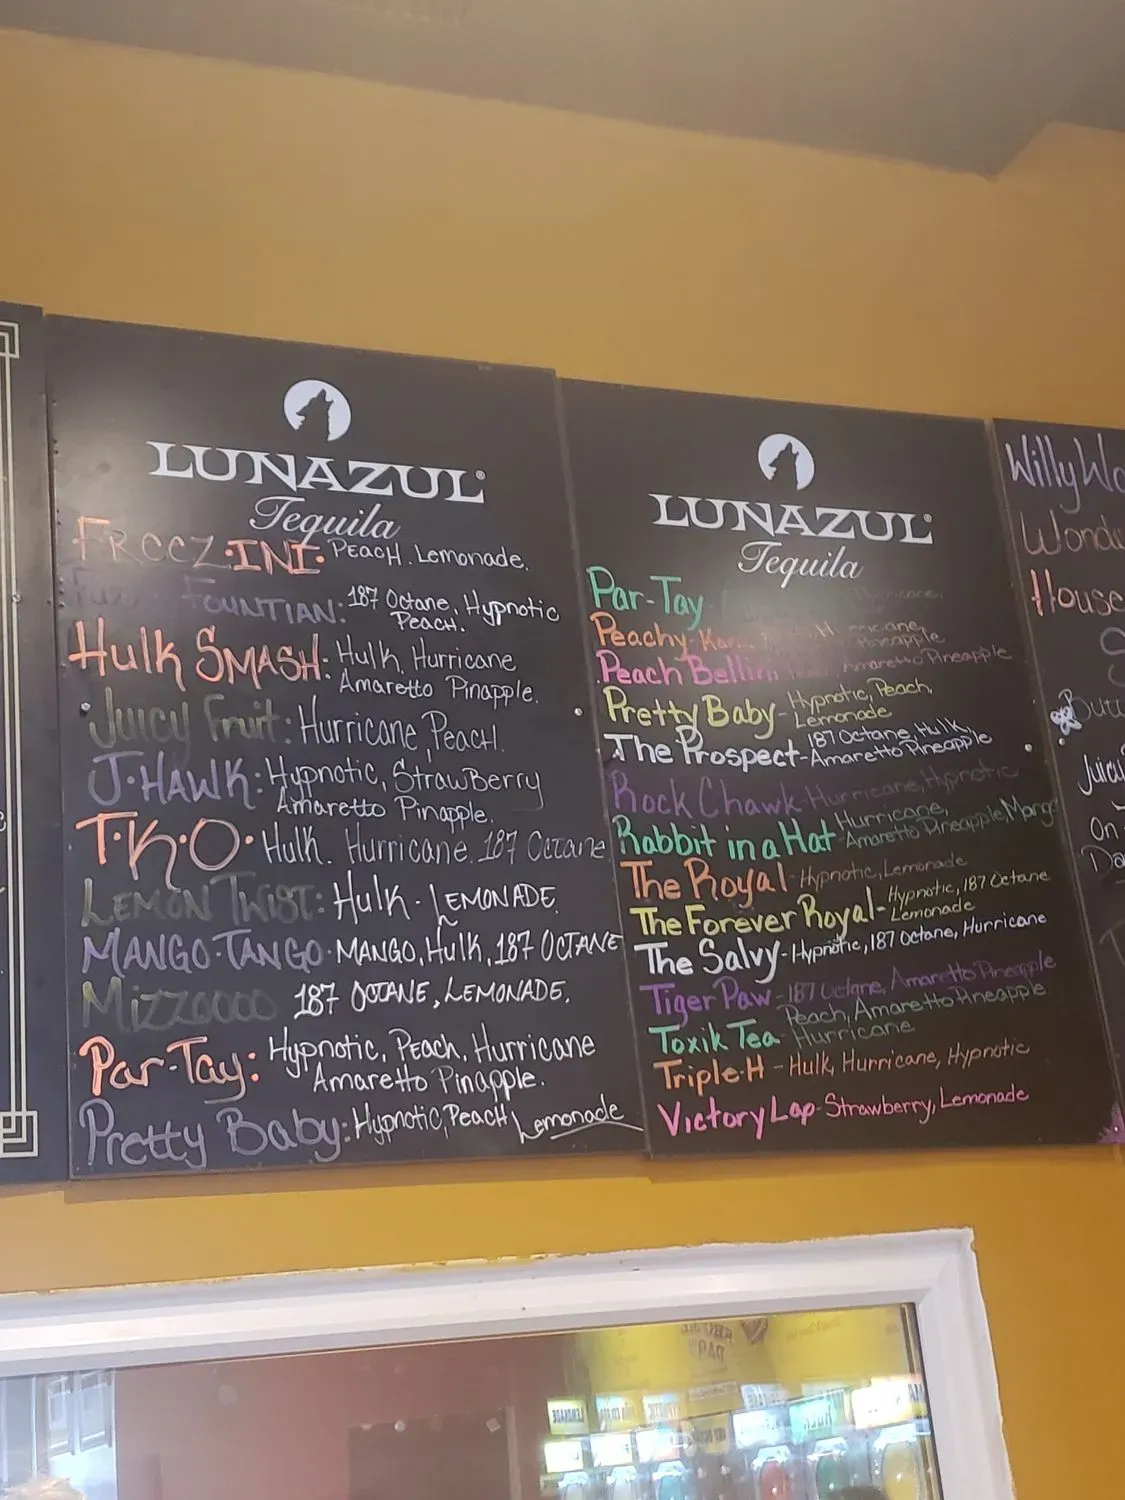 LUNAZUL®
Tequila
FReeZ·INI· PEACH. Lemonade.
FOUNTIAN: 187 Octane, Hypnotic
PEACH.
Hulk SMASH: Hulk, Hurricane
Amaretto Pinapple.
Juicy Fruit: Hurricane, PEACH.
J·HAWK: Hypnotic, StrawBerry
Amaretto Pinapple.
T·K·O· Hulk. Hurricane. 187 Octane
LEMON TWIST: Hulk · LEMONADE.
MANGO·TANGO· MANGO, Hulk, 187 OCTANE
Mizzoooo 187 OCTANE, LEMONADE.
Par-Tay: Hypnotic, PEACH, Hurricane
Amaretto Pinapple.
Pretty Baby: Hypnotic, PEACH Lemonade
LUNAZUL®
Tequila
Par-Tay
Peachy
Pineapple
Peach Bellini Amaretto Pineapple
Pretty Baby- Hypnotic, Peach,
Lemonade
The Prospect- 187 Octane, Hulk,
Amaretto Pineapple
Rock Chawk- Hurricane, Hypnotic
Rabbit in a Hat- Hurricane,
Amaretto Pineapple, Mango
The Royal- Hypnotic, Lemonade
The Forever Royal- Hypnotic, 187 Octane
Lemonade
The Salvy- Hypnotic, 187 Octane, Hurricane
Tiger Paw- 187 Octane, Amaretto Pineapple
Toxik Tea- Peach, Amaretto Pineapple
Hurricane
Triple-H - Hulk, Hurricane, Hypnotic
Victory Lap- Strawberry, Lemonade
Willy
House
On